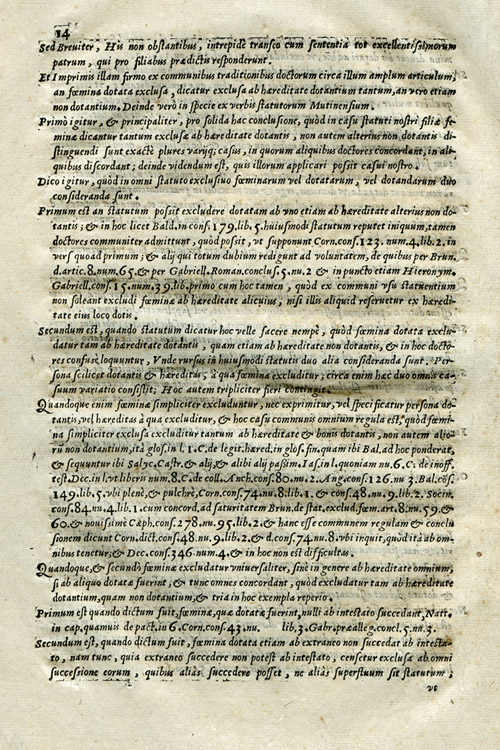 14
Sed Breuiter, His non obstantibus, intrepidè transeo cum sententia tot excellentissimorum
patrum, qui pro filiabus prædictis responderunt.
Et Imprimis illam firmo ex communibus traditionibus doctorum circa illum amplum articulum,
an fœmina dotata exclusa, dicatur exclusa ab hæreditate dotantium tantum, an vero etiam
non dotantium. Deinde verò in specie ex verbis statutorum Mutinensium.
Primò igitur, & principaliter, pro solida hac conclusione, quòd in casu statuti nostri filiæ fe-
minæ dicantur tantum exclusæ ab hæreditate dotantis, non autem alterius non dotantis di-
stinguendi sunt exactè plures varijq; casus, in quorum aliquibus doctores concordant, in ali-
quibus discordant; deinde videndum est, quis illorum applicari possit casui nostro.
Dico igitur, quòd in omni statuto exclusiuo fœminarum vel dotatarum, vel dotandarum duo
consideranda sunt.
Primum est an statutum possit excludere dotatam ab vno etiam ab hæreditate alterius non do-
tantis; & in hoc licet Bald. in cons. 179. lib. 5. huiusmodi statutum reputet iniquum, tamen
doctores communiter admittunt, quòd possit, vt supponunt Corn. cons. 123. num. 4. lib. 2. in
vers quoad primum; & alij qui totum dubium redigunt ad voluntatem, de quibus per Brun.
d. artic. 8. num. 65. & per Gabriell. Roman. conclus. 5. nu. 2 & in puncto etiam Hieronym.
Gabriell. cons. 15. num. 39. lib. primo cum hoc tamen, quòd ex communi vsu statuentium
non soleant excludi fœminæ ab hæreditate alicuius, nisi illis aliquid reseruetur ex hæredi-
tate eius loco dotis.
Secundum est, quando statutum dicatur hoc velle facere nempè, quòd fœmina dotata exclu-
datur tam ab hæreditate dotantis, quam etiam ab hæreditate non dotantis, & in hoc docto-
res confusè loquuntur, Vnde rursus in huiusmodi statutis duo alia consideranda sunt. Per-
sona scilicet dotantis & hæreditas, à qua fœmina excluditur; circa enim hæc duo omnis ca-
suum variatio consistit; Hoc autem tripliciter fieri contingit.
Quandoque enim fœminæ simpliciter excluduntur, nec exprimitur, vel specificatur persona do-
tantis, vel hæreditas à qua excluditur, & hoc casu communis omnium regula est, quòd fœmi-
na simpliciter exclusa excluditur tantum ab hæreditate & bonis dotantis, non autem alio-
rũ non dotantium, ità glos. in l. 1. C. de legit. hæred. in glos. fin. quam ibi Bal. ad hoc ponderat,
& sequuntur ibi Salyc. Castr. & alij, & alibi alij passim. Ias. in l. quoniam nu. 6. C. de inoff.
test. Dec. in l. vt liberis num. 8. C. de coll. Anch. cons. 80. nu. 2. Ang. cons. 126. nu 3. Bal. cõs.
149. lib. 5. vbi plenè, & pulchrè, Corn. cons. 74. nu. 8. lib. 1. & cons. 48. nu. 9. lib. 2. Socin.
cons. 84. nu. 4. lib. 1. cum concord, ad saturitatem Brun. de stat. exclud. fœm. art. 8. nu. 59. &
60. & nouissimè Cæph. cons. 278. nu. 95. lib. 2. & hanc esse communem regulam & conclu
sionem dicunt Corn. dict. cons. 48. nu. 9. lib. 2. & d. cons. 74. nu. 8. vbi inquit, quòd ità ab om-
nibus tenetur, & Dec. cons. 346. num. 4. & in hoc non est difficultas.
Quandoque, & secundò fœminæ excludatur vniuersaliter, siuè in genere ab hæreditate omnium,
si ab aliquo dotatæ fuerint, & tunc omnes concordant, quòd excludatur tam ab hæreditate
dotantium, quam non dotantium, & tria in hoc exempla reperio.
Primum est quando dictum fuit, fœminæ, quæ dotatæ fuerint, nulli ab intestato succedant, Natt.
in cap. quamuis de pact. in 6. Corn. cons. 43. nu. lib. 3. Gabr. præalleg. concl. 5. nu. 3.
Secundum est, quando dictum fuit, fœmina dotata etiam ab extraneo non succedat ab intesta-
to, nam tunc, quia extraneo succedere non potest ab intestato, censetur exclusa ab omni
successione eorum, quibus aliàs succedere posset, ne aliàs superfluum sit statutum;
vt